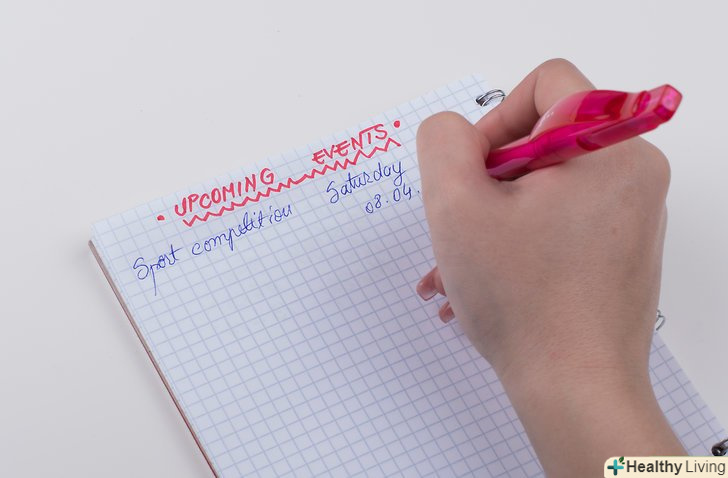 • UPCOMING EVENTS •
Sport competition Saturday
08.04.
Healthy Living